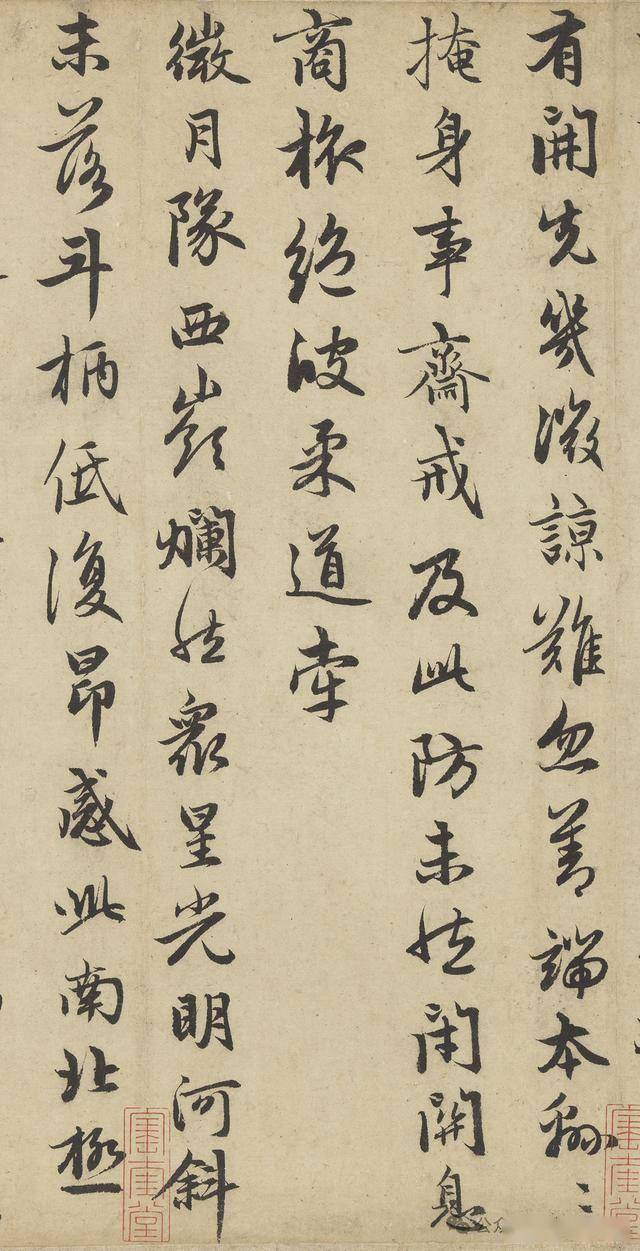 有開先幾微諒難忽善端本綿〻
掩身事齋戒及此防未然閉關息
商旅絕彼柔道牽
微月隊西嶺爛然衆星光明河斜
未落斗柄低復昂感此南北極